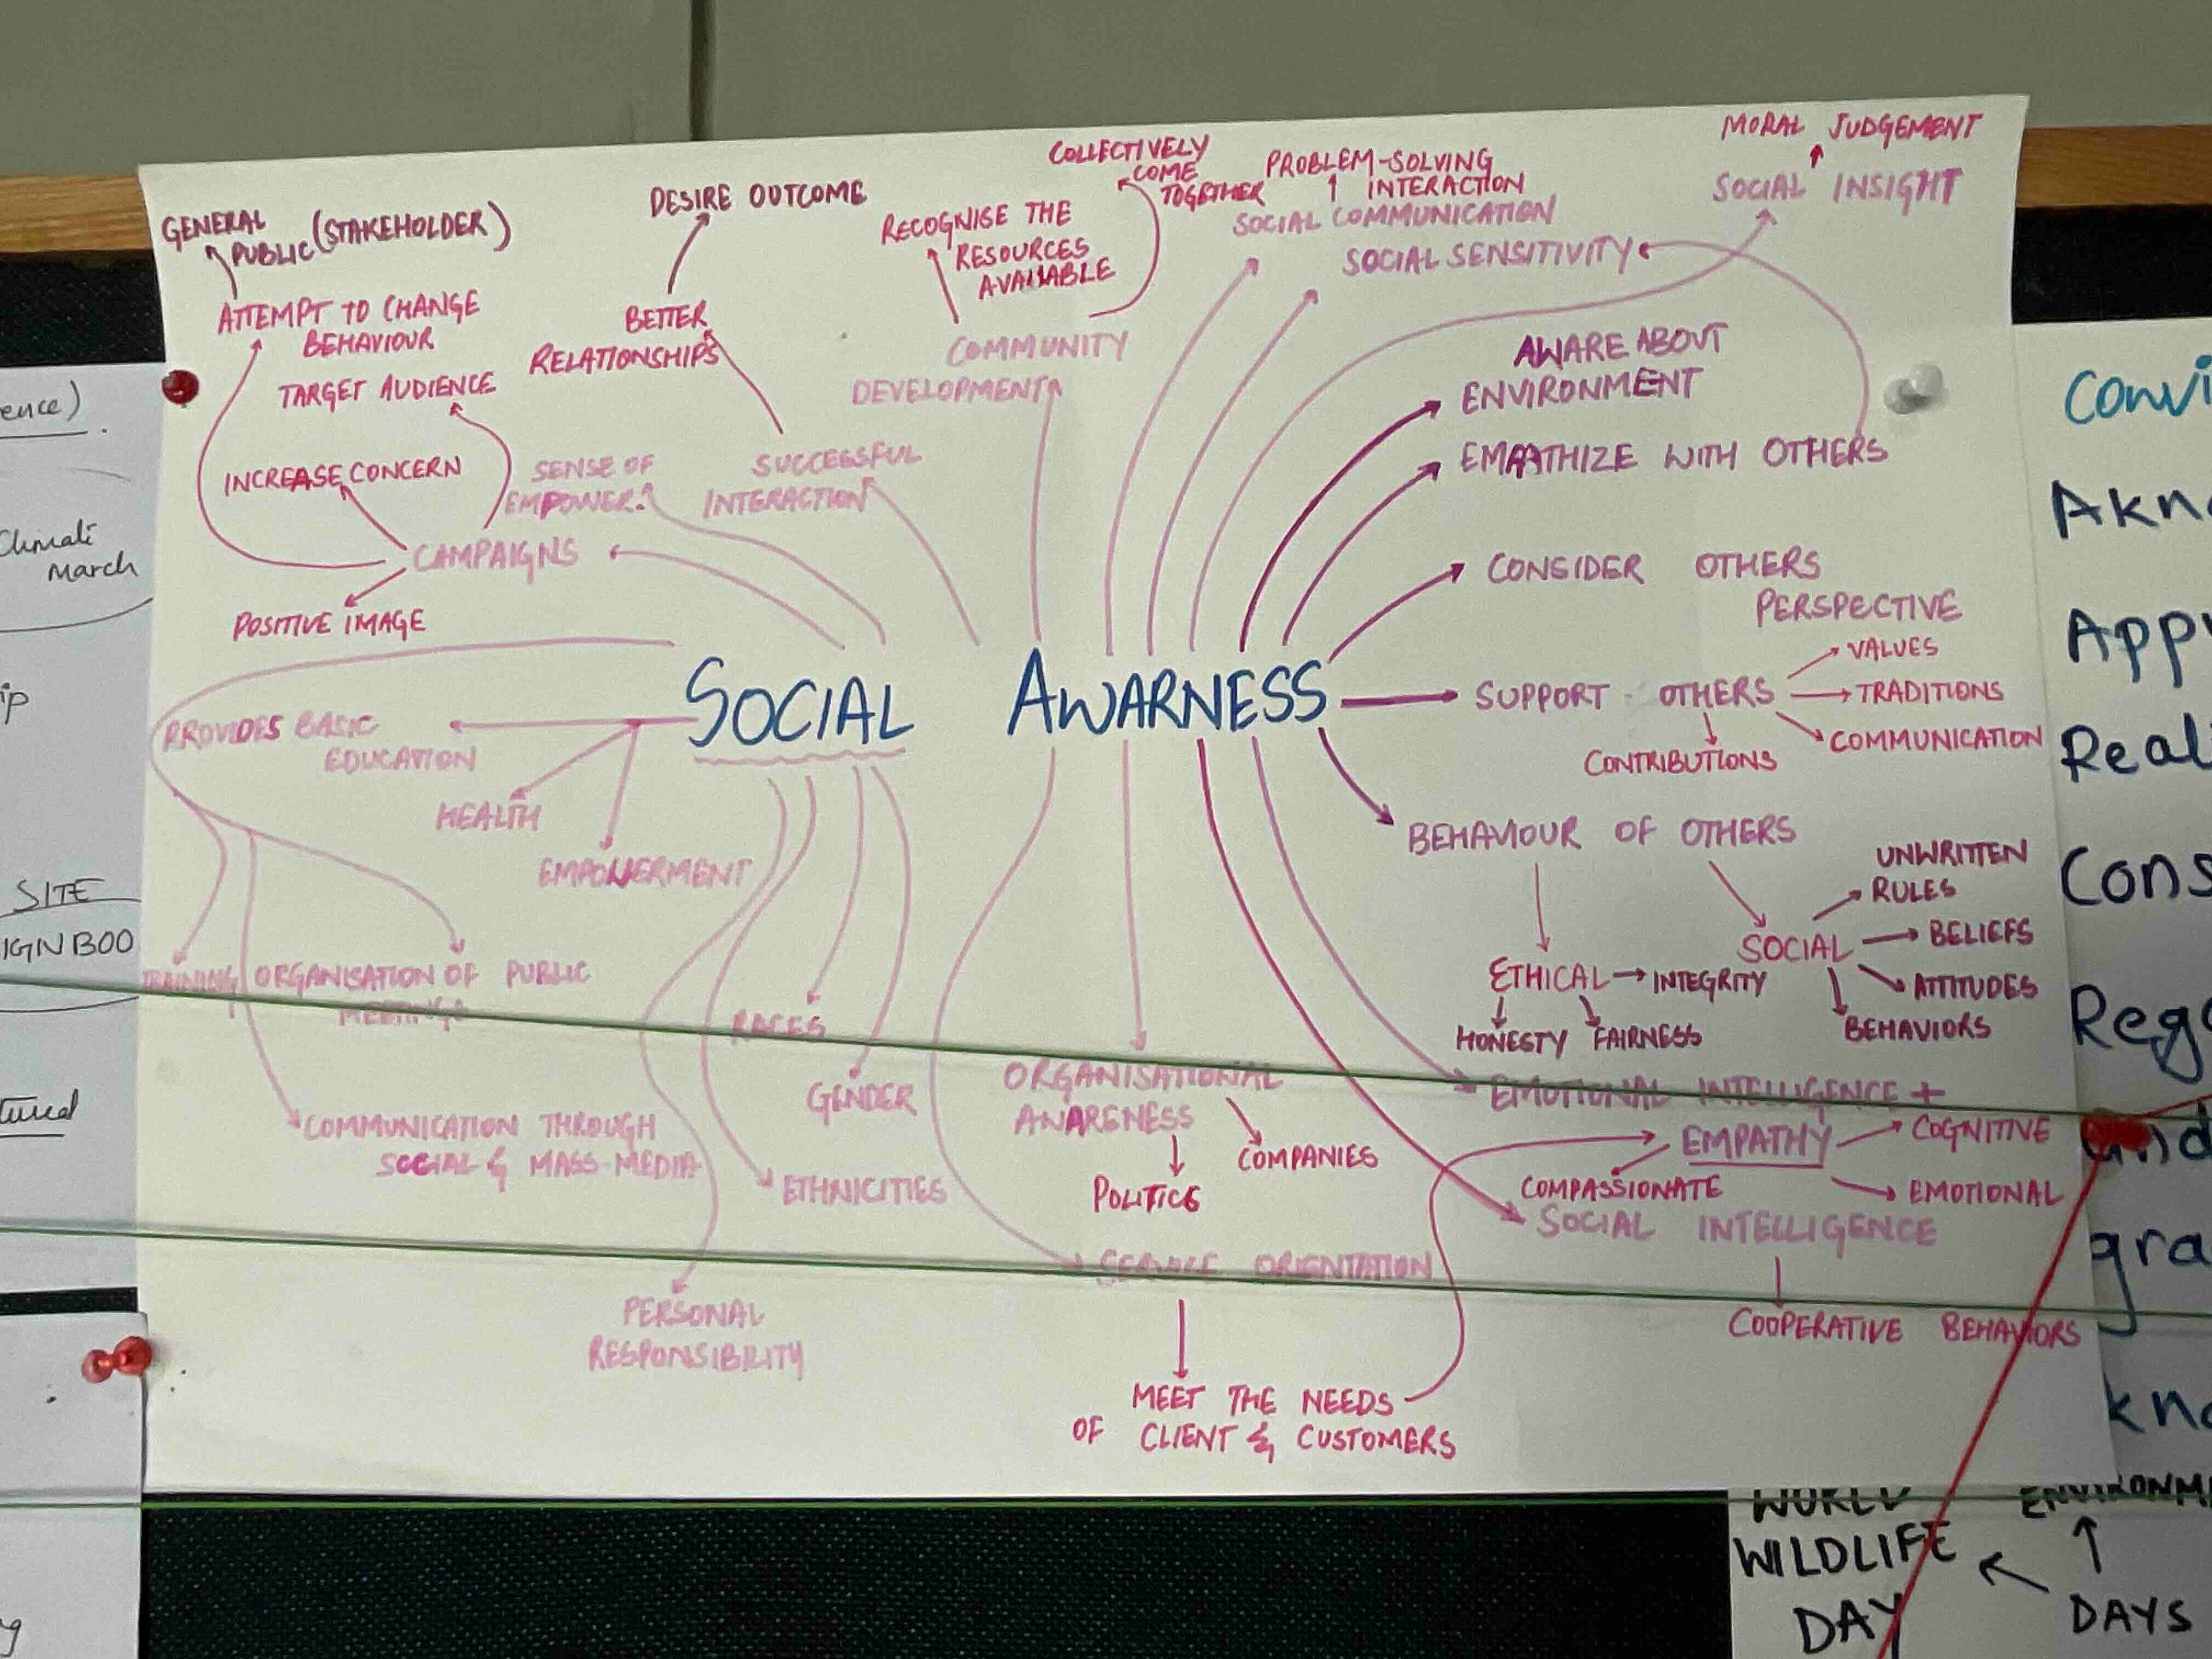 GENERAL
PUBLIC (STAKEHOLDER)
ATTEMPT TO CHANGE
BEHAVIOUR
TARGET AUDIENCE
INCREASE CONCERN
CAMPAIGNS
POSITIVE IMAGE
SENSE OF
EMPOWER.
DESIRE OUTCOME
BETTER
RELATIONSHIPS
SUCCESSFUL
INTERACTION
RECOGNISE THE
RESOURCES
AVAILABLE
COLLECTIVELY
COME
TOGETHER
COMMUNITY
DEVELOPMENT
PROBLEM-SOLVING
INTERACTION
SOCIAL COMMUNICATION
SOCIAL SENSITIVITY
MORAL JUDGEMENT
SOCIAL INSIGHT
AWARE ABOUT
ENVIRONMENT
EMPATHIZE WITH OTHERS
CONSIDER OTHERS
PERSPECTIVE
SOCIAL AWARNESS
SUPPORT OTHERS
VALUES
TRADITIONS
COMMUNICATION
CONTRIBUTIONS
BEHAVIOUR OF OTHERS
UNWRITTEN
RULES
SOCIAL
BELIEFS
ATTITUDES
BEHAVIORS
ETHICAL → INTEGRITY
HONESTY FAIRNESS
EMOTIONAL INTELLIGENCE +
EMPATHY
COGNITIVE
COMPASSIONATE
EMOTIONAL
SOCIAL INTELLIGENCE
COOPERATIVE BEHAVIORS
PROVIDES BASIC
EDUCATION
HEALTH
EMPOWERMENT
TRAINING
ORGANISATION OF PUBLIC
MEETINGS
COMMUNICATION THROUGH
SOCIAL & MASS-MEDIA
RACES
GENDER
ETHNICITIES
PERSONAL
RESPONSIBILITY
ORGANISATIONAL
AWARENESS
COMPANIES
POLITICS
SERVICE ORIENTATION
MEET THE NEEDS
OF CLIENT & CUSTOMERS
ence)
Climate
March
ip
SITE
IGN BOO
tured
g
Convi
Akn
App
Real
Cons
Reg
und
gra
kno
WORLD
WILDLIFE
DAY
ENVIRONM
DAYS